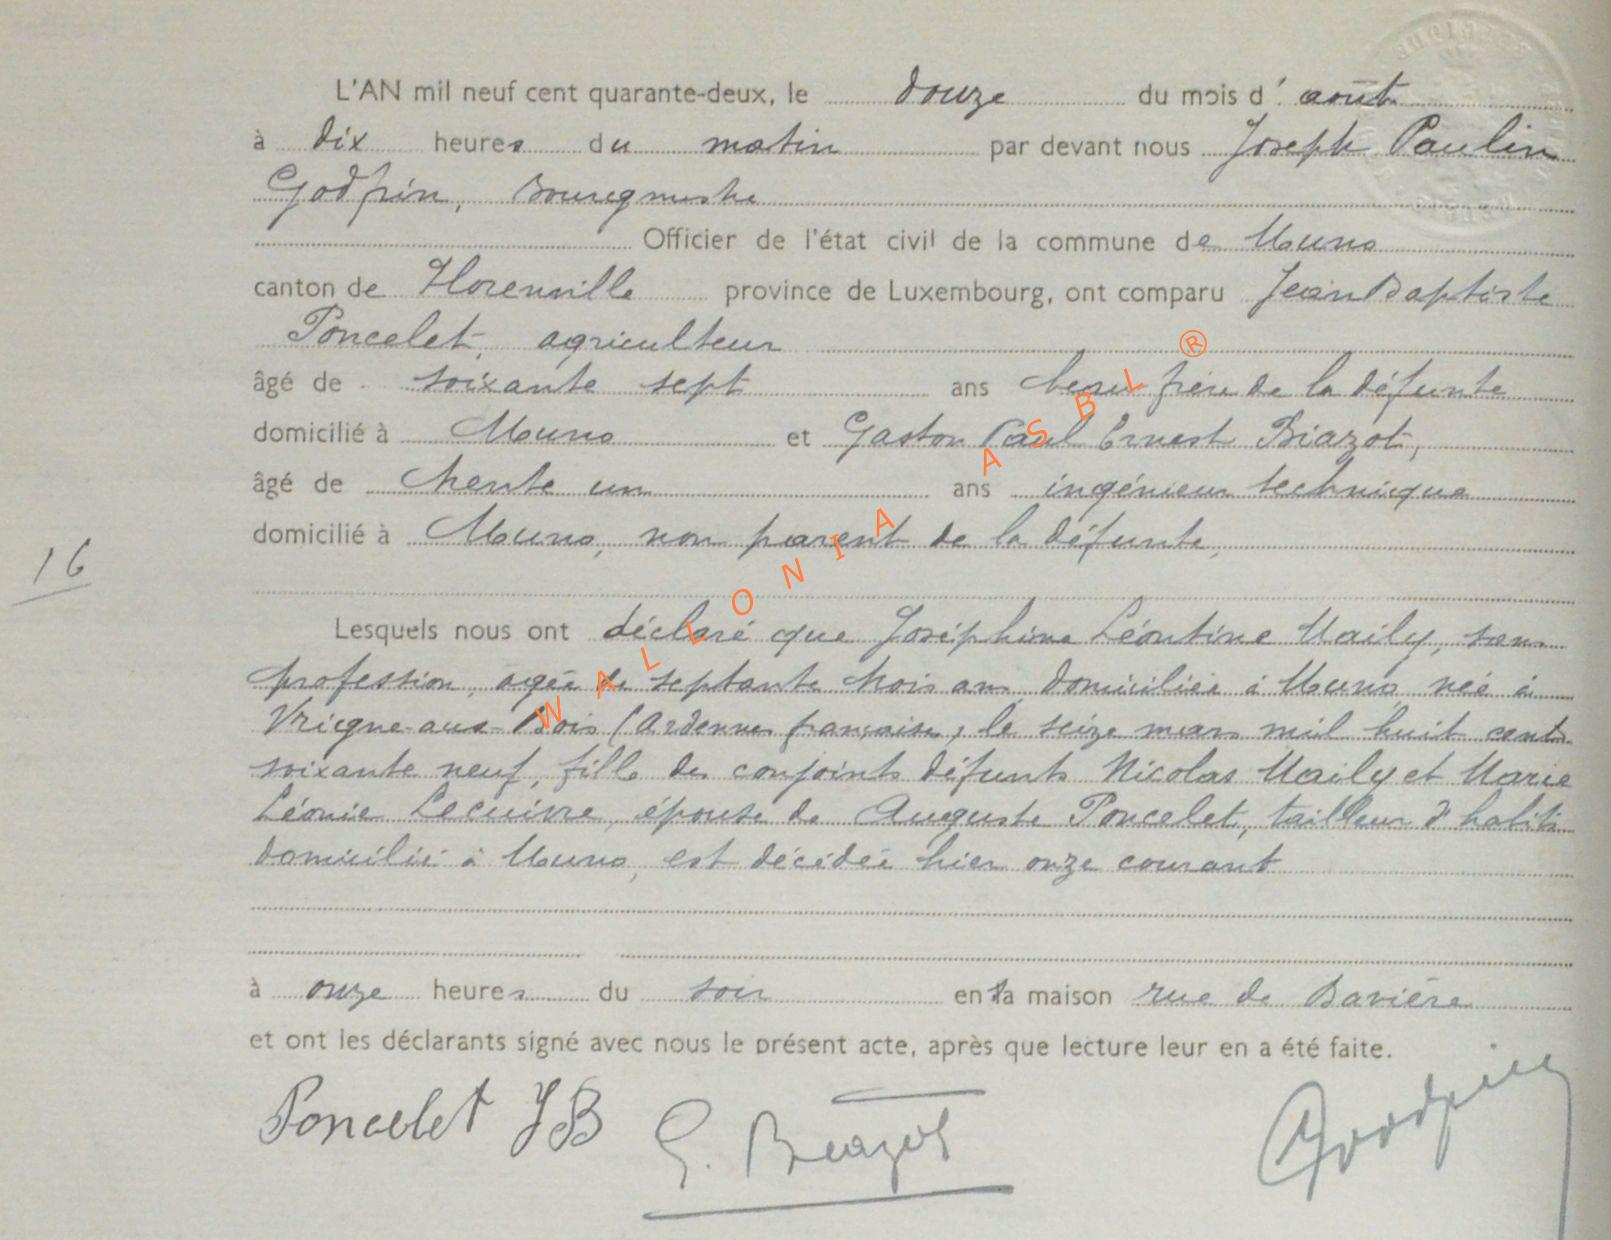 L'AN mil neuf cent quarante-deux, le douze du mois d' août
à dix heures du matin par devant nous Joseph Paulin
Godfrin, Bourgmestre
Officier de l'état civil de la commune de Muno
canton de Florenville province de Luxembourg, ont comparu Jean Baptiste
Poncelet, agriculteur
âgé de soixante sept ans beau frère de la défunte
domicilié à Muno et Gaston Paul Ernest Biazot,
âgé de trente un ans ingénieur technique
domicilié à Muno, non parent de la défunte,
16
Lesquels nous ont déclaré que Joséphine Léontine Maily, sans
profession, agée de septante trois ans, domiciliée à Muno, née à
Vrigne-aux-Bois (Ardennes françaises) le seize mars mil huit cent
soixante neuf, fille des conjoints défunts Nicolas Maily et Marie
Léonie Lecuivre, épouse de Auguste Poncelet, tailleur d'habits
domicilié à Muno, est décédée hier onze courant
à onze heures du soir en sa maison rue de Bavière
et ont les déclarants signé avec nous le présent acte, après que lecture leur en a été faite.
Poncelet JB G. Biazot Godfrin
WALLONIA ASBL ®